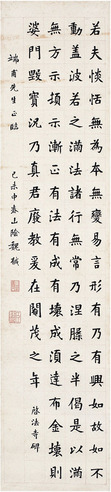 若夫恬怕本無變易言形有乃有興如故如不
動蓋波若之滿法諸行無常乃涅槃之半偈是以滿
無方示煩示漸正有法有成有壞成須達布金壞則
婆門毀寶況乃真君廢教爰在閹茂之年
法寺碑
端甫先生正臨
己未中春山陰魏戫